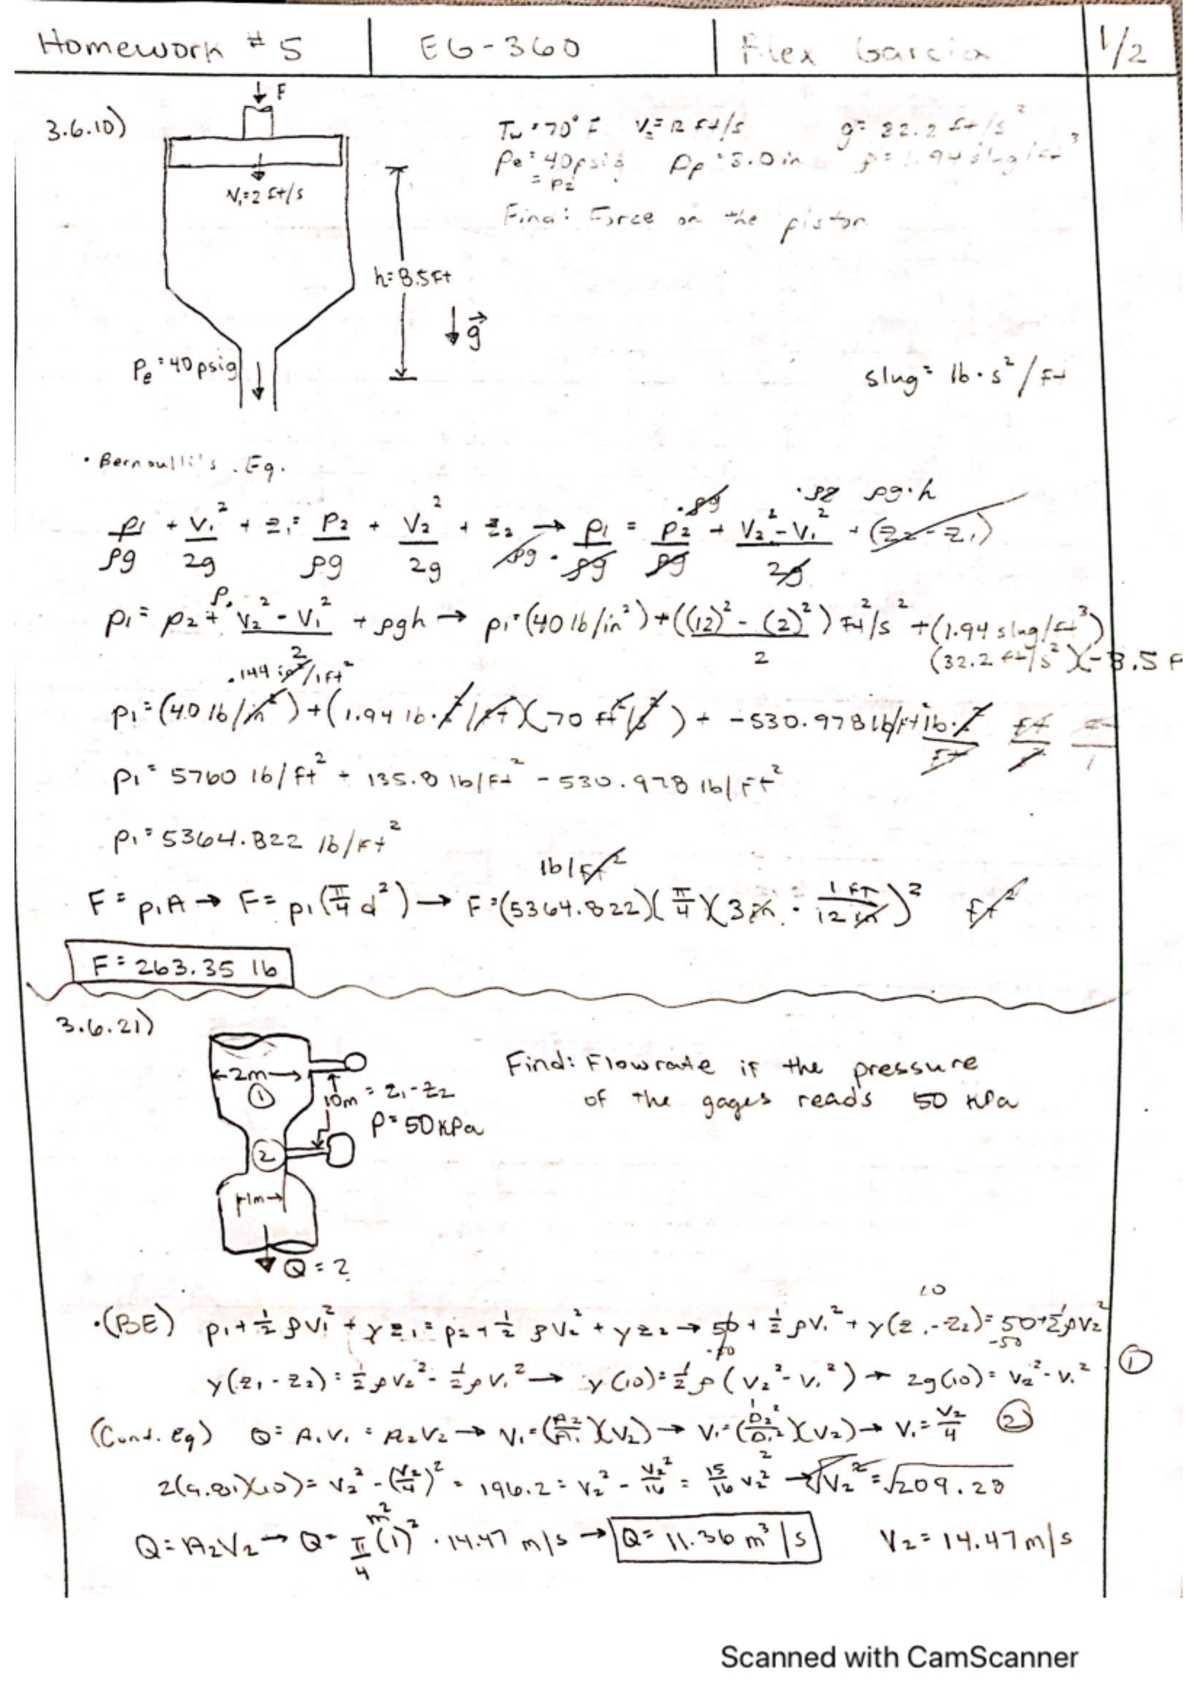 Homework # 5 EG-360 Alex Garcia 1/2
3.6.10)
F
V₁=2 ft/s
h=8.5ft
g⃗
Pe=40psig
Tw=70°F V₂=12 ft/s g=32.2 ft/s²
Pe=40psig Dp=3.0in ρ=1.94slug/ft³
=P2
Find: Force on the piston
slug = lb·s²/ft
• Bernoulli's Eq.
·ρg ·ρg ρg·h
p1/ρg + V₁²/2g + z₁ = P2/ρg + V₂²/2g + z₂ → ρg · p1/ρg = p2/ρg + V₂²-V₁²/2g + (z₂-z₁)
p1 = p2 + ρ· V₂²-V₁²/2 + ρgh → p1=(40 lb/in²)+((12)²-(2)²) ft²/s²/2 +(1.94 slug/ft³)
(32.2 ft/s²)(-8.5 F
·144 in²/1ft²
p1=(40 lb/in²)+(1.94 lb·s²/ft⁴)(70 ft²/s²) + -530.978 lb/ft
p1= 5760 lb/ft² + 135.8 lb/ft² - 530.978 lb/ft²
p1=5364.822 lb/ft²
lb/ft²
F=p1A → F= p1(π/4 d²) → F=(5364.822)(π/4)(3in · 1ft/12in)² ft²
F=263.35 lb
3.6.21)
2m
①
10m = z₁-z₂
P=50kPa
②
1m
Q=?
Find: Flowrate if the pressure
of the gages reads 50 kPa
10
•(BE) p1+½ρV₁²+γz₁=p2+½ρV₂²+γz₂→50+½ρV₁²+γ(z₁-z₂)=50+½ρV₂²
-50 -50
γ(z₁-z₂)=½ρV₂²-½ρV₁²→ γ(10)=½ρ(V₂²-V₁²)→ 2g(10)=V₂²-V₁² ①
(Cont. Eq) Q=A₁V₁=A₂V₂→V₁=(A₂/A₁)(V₂)→V₁=(D₂²/D₁²)(V₂)→V₁=V₂/4 ②
2(9.81)(10)=V₂²-(V₂/4)² = 196.2=V₂²-V₂²/16 = 15/16 V₂² → √V₂²=√209.28
Q=A₂V₂→Q=π/4(1)² m² · 14.47 m/s → Q=11.36 m³/s V₂=14.47m/s
Scanned with CamScanner